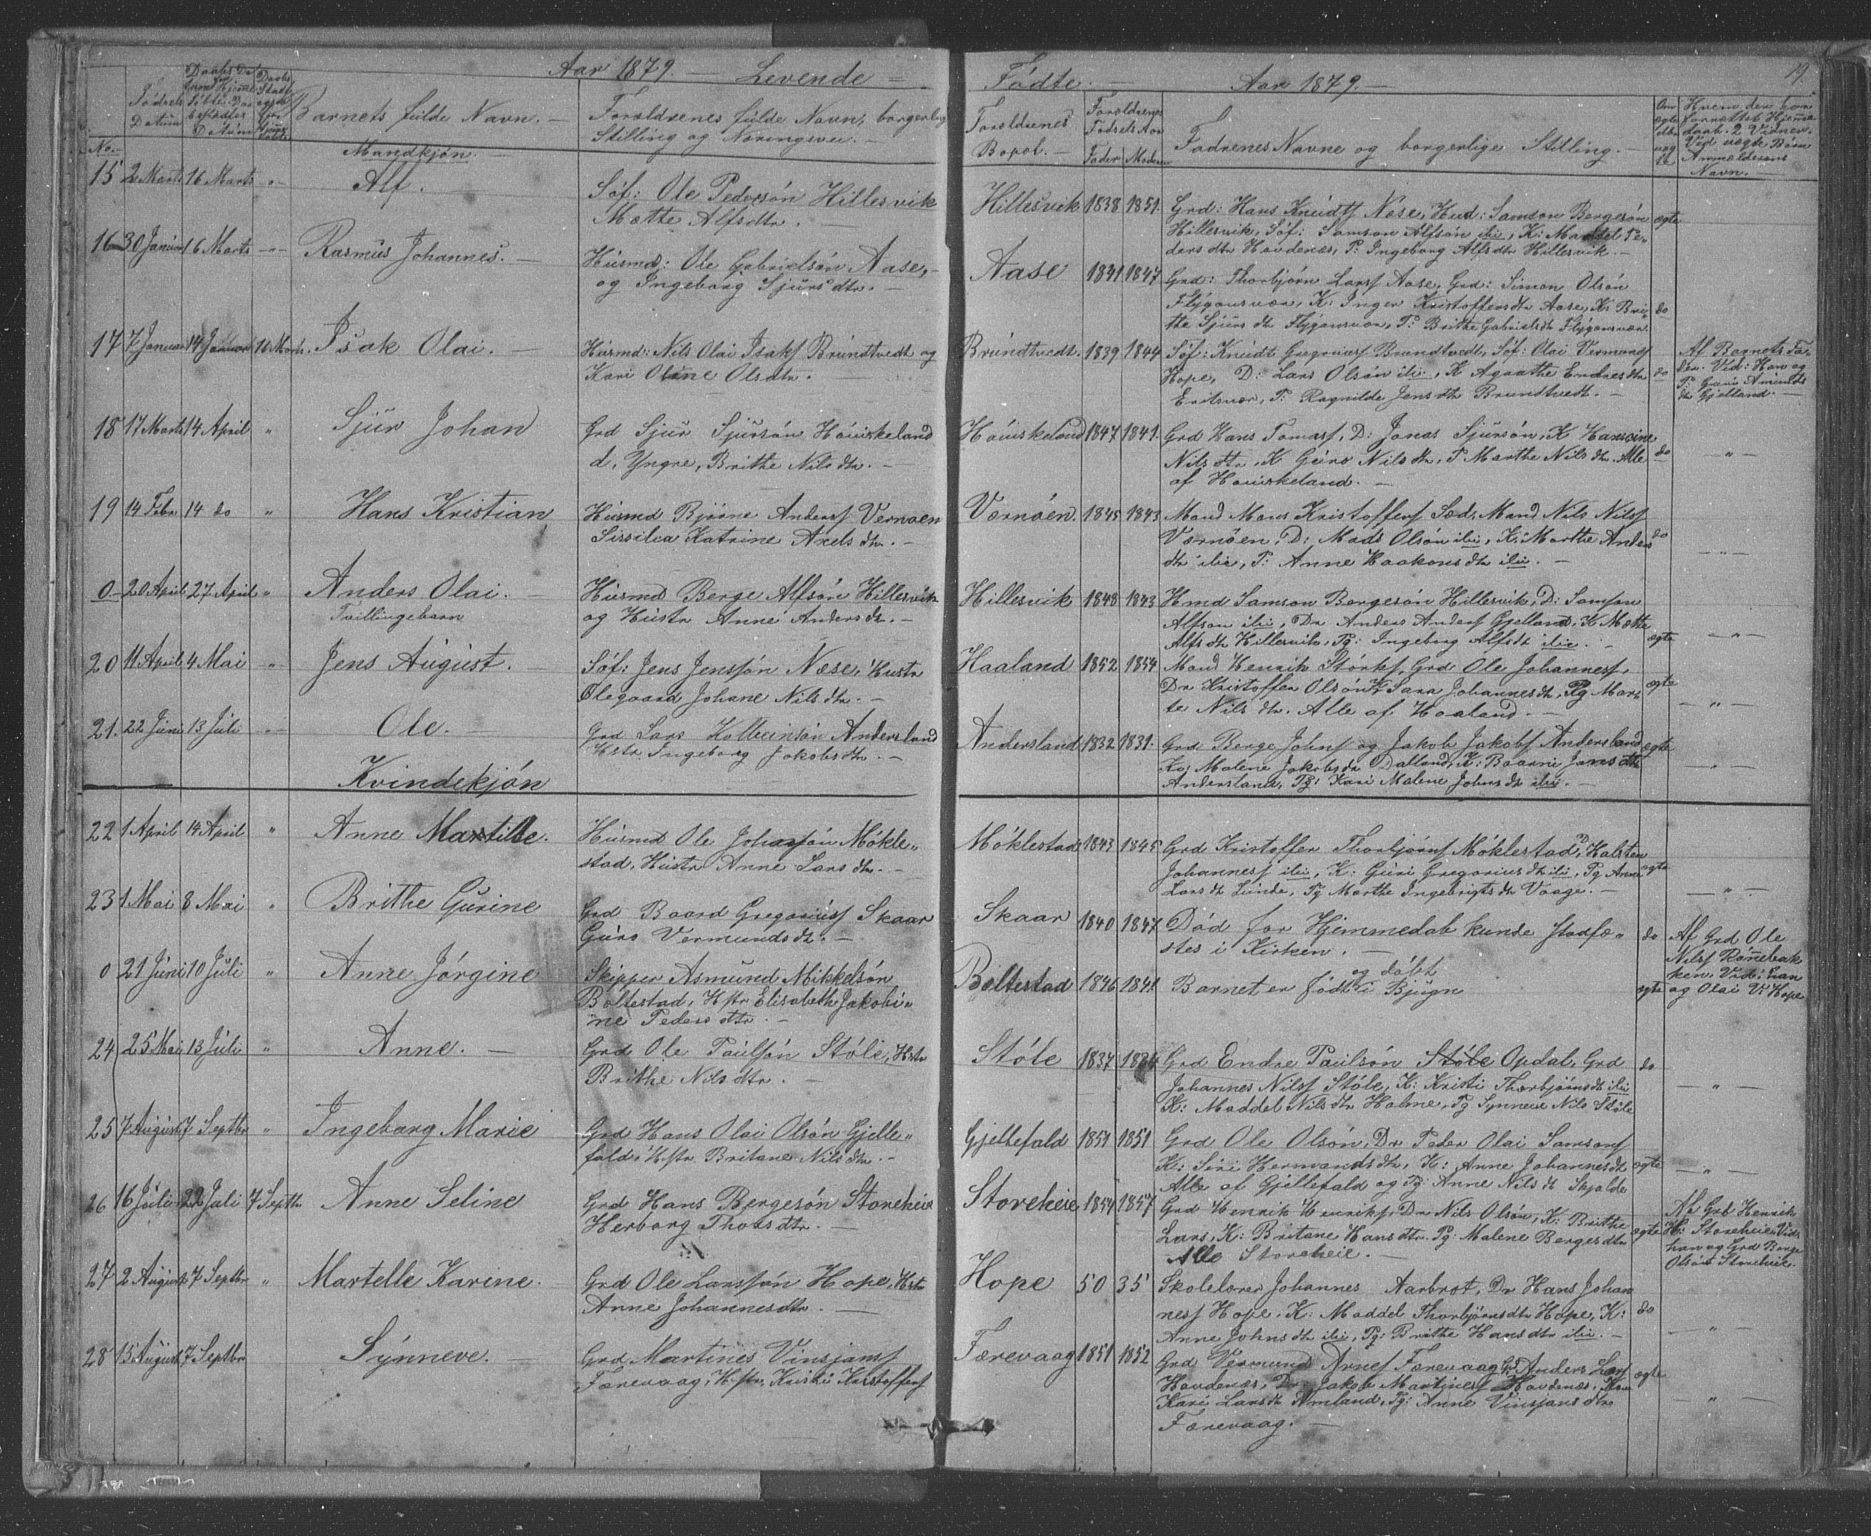 Aar 1879. — Levende =
Fødte. — Aar 1879. —
19.
No. Fødsels Datum
Barnets fulde Navn. —
Forældrenes fulde Navn, borgerlig
Stilling og Næringsvei
Forældrenes
Bopæl. —
Forældrenes
Fødsels Aar
Fader Moder
Fadrenes Navne og borgerlige Stilling. —
Mandkjøn. —
15 2 Marts 16 Marts " Alf. —
Søf: Ole Pedersøn Hillesvik
Mætte Alfsdtr. —
Hillesvik 1838 1851
Grd: Hans Knudsf Næse, Hmd: Samson Bergesøn
Hillesvik, Søf: Samson Alfsøn ibi, K: Maddel Pe-
dersdtr Hovdenæs, P: Ingeborg Alfsdtr Hillesvik. —
ægte
16 30 Januar 16 Marts " Rasmus Johannes. —
Husmd: Ole Gabrielsøn Aase, —
og Ingeborg Sjursdtr. —
Aase 1831 1847
Grd: Thorbjørn Larsf Aase, Grd: Simon Olsøn
Flygansvær, K: Inger Kristoffersdtr Aase, K: Bri-
the Sjursdtr Flygansvær, P: Brithe Gabrielsdtr Flygansvær.
do
17 7 Januar 14 Januar 16 Marts. Isak Olai. —
Husmd: Nils Olai Isaksf Brundtvedt og
Kari Oline Olsdtr. —
Brundtvedt. 1839 1844
Søf: Knudt Gregoriusf Brundtvedt, Søf: Olai Vermundsf
Hope, D: Lars Olsøn ibi, K Agaathe Endresdtr
Eritsvær, P: Ragnilde Jensdtr Brundtvedt. —
do
Af Barnets Fa-
der. Vid: Han og
P: Guro Amunds
dtr Gjelland. —
18 17 Marts 14 April " Sjur Johan
Grd Sjur Sjursøn Houskeland
d, Yngre, Brithe Nilsdtr. —
Houskeland 1847 1841.
Grd Hans Tomasf, D: Jonas Sjursøn, K Hansine
Nilsdtr, K Guro Nilsdtr, P Marthe Nilsdtr. Alle
af Houskeland. —
do — " —
19 14 Febr 14 do " Hans Kristian
Husmd Bjørne Andersf Vernøen
Sissilia Katrine Axelsdtr. —
Værnøen. 1845 1843
Mand Mons Kristoffersf Sæd, Mand Nils Nilsf
Værnøen, D: Mads Olsøn ibi, K: Marthe Anders
dtr ibi, P: Anne Haakonsdtr ibi. —
do — " —
0 20 April 27 April " Anders Olai. —
Tvillingebarn
Husmd Berge Alfsøn Hillesvik
og Hustr Anne Andersdtr. —
Hillesvik 1848 1843
Hmd Samson Bergesøn Hillesvik, D: Samson
Alfsøn ibi, Dr Anders Andersf Gjelland, K Mætte
Alfsdtr Hillesvik, Pg: Ingeborg Alfsdtr ibi. —
ægte — " —
20 11 April 4 Mai " Jens August. —
Søf: Jens Jenssøn Næse, Hustr
Olegaard Johane Nilsdtr. —
Haaland 1852 1854
Mand Henrik Størksf, Grd Ole Johannesf,
Dr Kristoffer Olsøn, K Sara Johannesdtr, Pg Mar-
te Nilsdtr. Alle af Haaland. —
ægte — " —
21. 22 Juni 13 Juli " Ole. —
Grd Lars Kolbeinsøn Andersland
Hstr Ingeborg Jakobsdtr. —
Andersland 1832 1831.
Grd Berge Johnsf og Jakob Jakobsf Andersland
Kv: Malene Jakobsdtr Dalland, K: Baarni Jonsdtr
Andersland, Pg: Kari Malene Johnsdtr ibi. —
ægte — " —
Kvindekjøn
22 1 April 14 April " Anne Martille.
Husmd Ole Johansøn Møkle-
stad, Hustr Anne Larsdtr. —
Møklestad 1843 1845
Grd Kristoffer Thorbjørnsf Møklestad, D Halsten
Johannesf ibi, K: Guri Gregoriusdtr ibi, Pg Anne
Larsdtr Lunde, Pg Marthe Ingebrigtsdtr Vaage. —
ægte — " —
23 1 Mai 8 Mai " Brithe Gurine
Grd Baard Gregoriusf Skaar
Guro Vermundsdtr. —
Skaar 1840 1847.
Død før Hjemmedaab kunde stadfæ-
stes i Kirken. —
do
Af Grd Ole
Nilsf Rønebak-
ken. Vid: Han
og Olai V: Hope
0 21 Juni 10 Juli " Anne Jørgine
Skipper Asmund Mikkelsøn
Boltestad, Hstr Elisabeth Jakobi-
ne Pedersdtr. —
Boltestad 1846 1841
Barnet er født og døbt i Bjugn
ægte
24 25 Mai 13 Juli " Anne. —
Grd Ole Paulsøn Støle, Hstr
Brithe Nilsdtr. —
Støle 1837 1834
Grd Endre Paulsøn Støle Opdal, Grd
Johannes Nilsf Støle, K: Kristi Thorbjørnsdtr ibi
K: Maddel Nilsdtr Holme, Pg Synneve Nils Støle
do — " —
25 7 August 7 Septbr " Ingeborg Marie
Grd Hans Olai Olsøn Gjelle-
fald, Hstr Britane Nilsdtr. —
Gjellefald 1851 1851
Grd Ole Olsøn, Dr Peder Olai Samsonsf
K: Siri Hermandsdtr, K: Anne Johannesdtr
Alle af Gjellefald og Pg: Anne Nilsdtr Skjolde
ægte — " —
26 16 Juli 22 Juli 7 Septbr Anne Seline
Grd Hans Bergesøn Storeheie
Herborg Thoresdtr. —
Storeheie 1854 1857
Grd Henrik Henriksf, Dr Nils Olsøn, K: Brithe
Lars, K: Britane Hansdtr. Pg: Malene Bergesdtr
Alle Storeheie. —
ægte
Af Grd Henrik
H: Storeheie, Vid:
han og Grd Berge
Olsøn Storeheie.
27 2 August 7 Septbr " Martelle Karine.
Grd Ole Larssøn Hope, Hstr
Anne Johannesdtr. —
Hope 50 35
Skolelærer Johannes Aarbrot, Dr Hans Johan
nesf Hope, K: Maddel Thorbjørnsdtr Hope, K:
Anne Johnsdtr ibi, Pg: Brithe Hansdtr ibi. —
do — " —
28 15 August 7 Septbr Synneve. —
Grd Martines Vinsjansf
Færevaag, Hstr, Kristi Kristoffersf
Færevaag 1851 1852
Grd Vermund Arnesf Færevaag, Grd Anders Larsf
Hovdenæs, Dr: Jakob Martinesf Hovdenæs, Kv:
Kari Larsdtr Amland, Pg: Anne Vinsjansdtr
Færevaag. —
ægte — " —